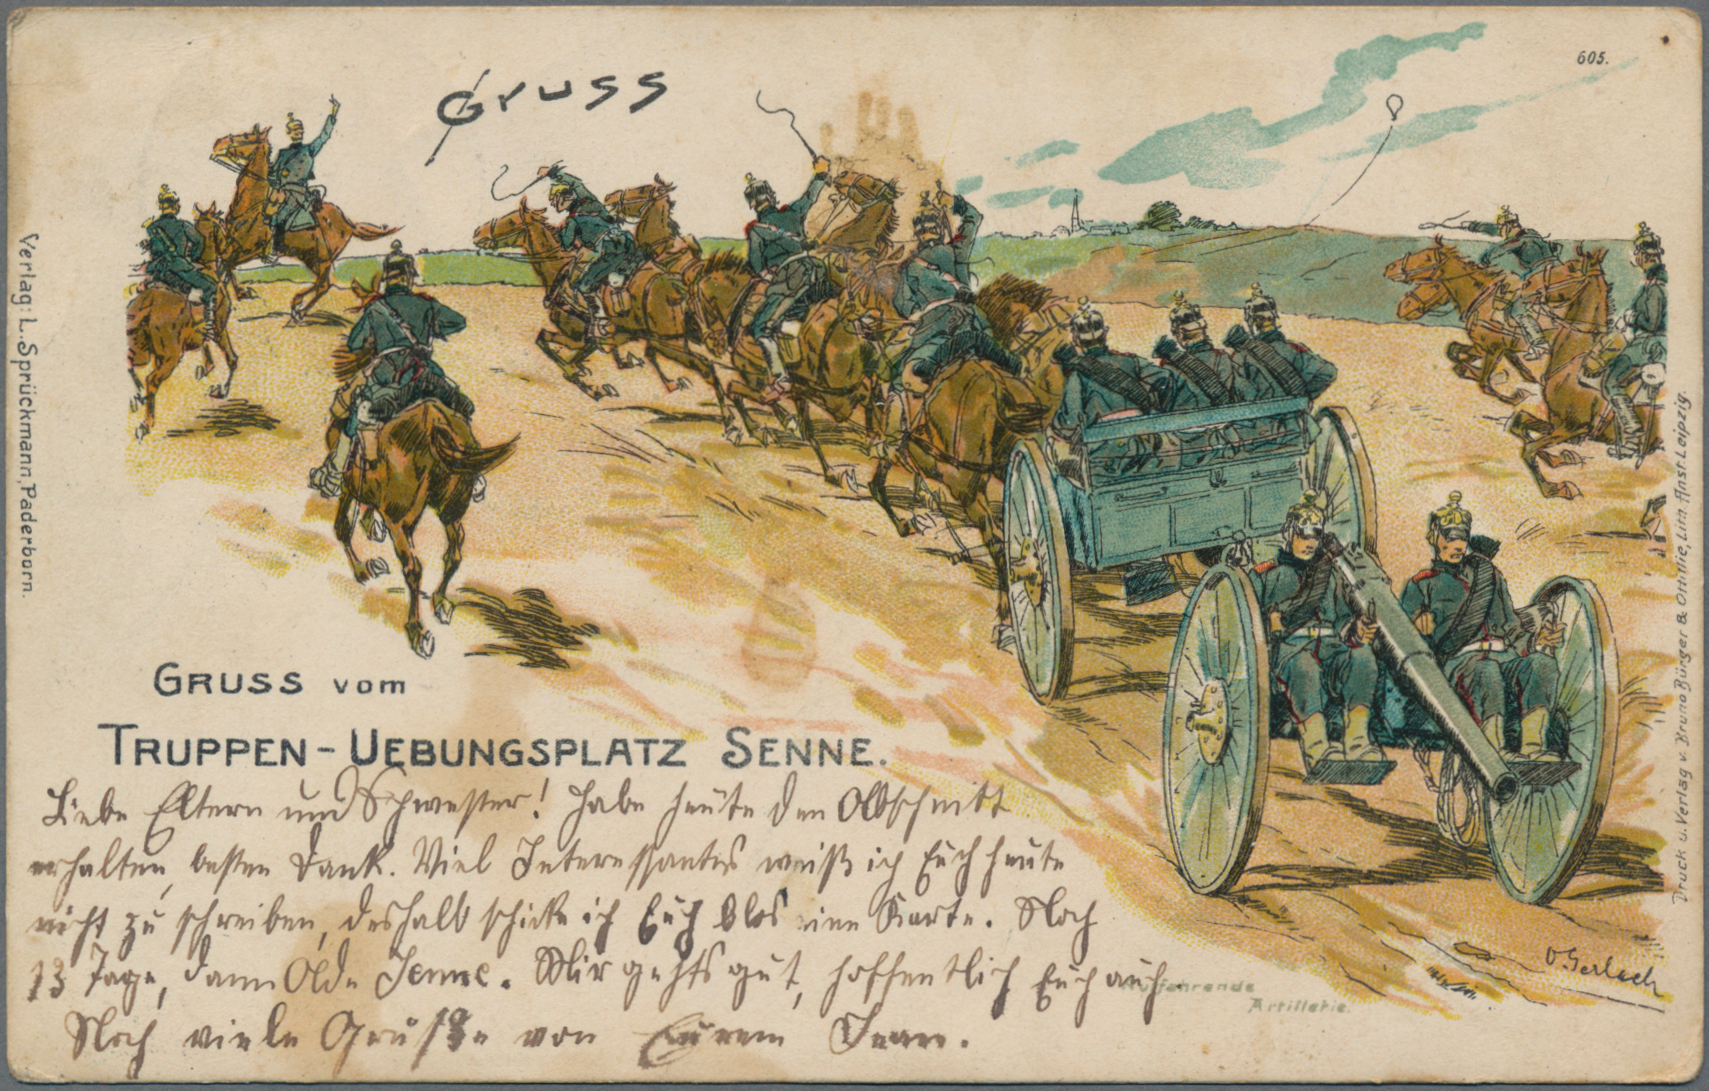 605.
Gruss
Verlag: L. Sprückmann, Paderborn.
GRUSS vom
TRUPPEN-UEBUNGSPLATZ SENNE.
Liebe Eltern und Schwester! Habe heute den Abschnitt
erhalten, besten Dank. Viel Interessantes weiß ich Euch heute
nicht zu schreiben, deshalb schicke ich Euch blos eine Karte. Noch
13 Tage, dann Olde Senne. Mir gehts gut, hoffentlich Euch auch.
Noch viele Grüße von Eurem Jean.
Auffahrende
Artillerie.
O. Gerlach
Druck u. Verlag v. Bruno Bürger & Ottillie, Lith. Anst. Leipzig.